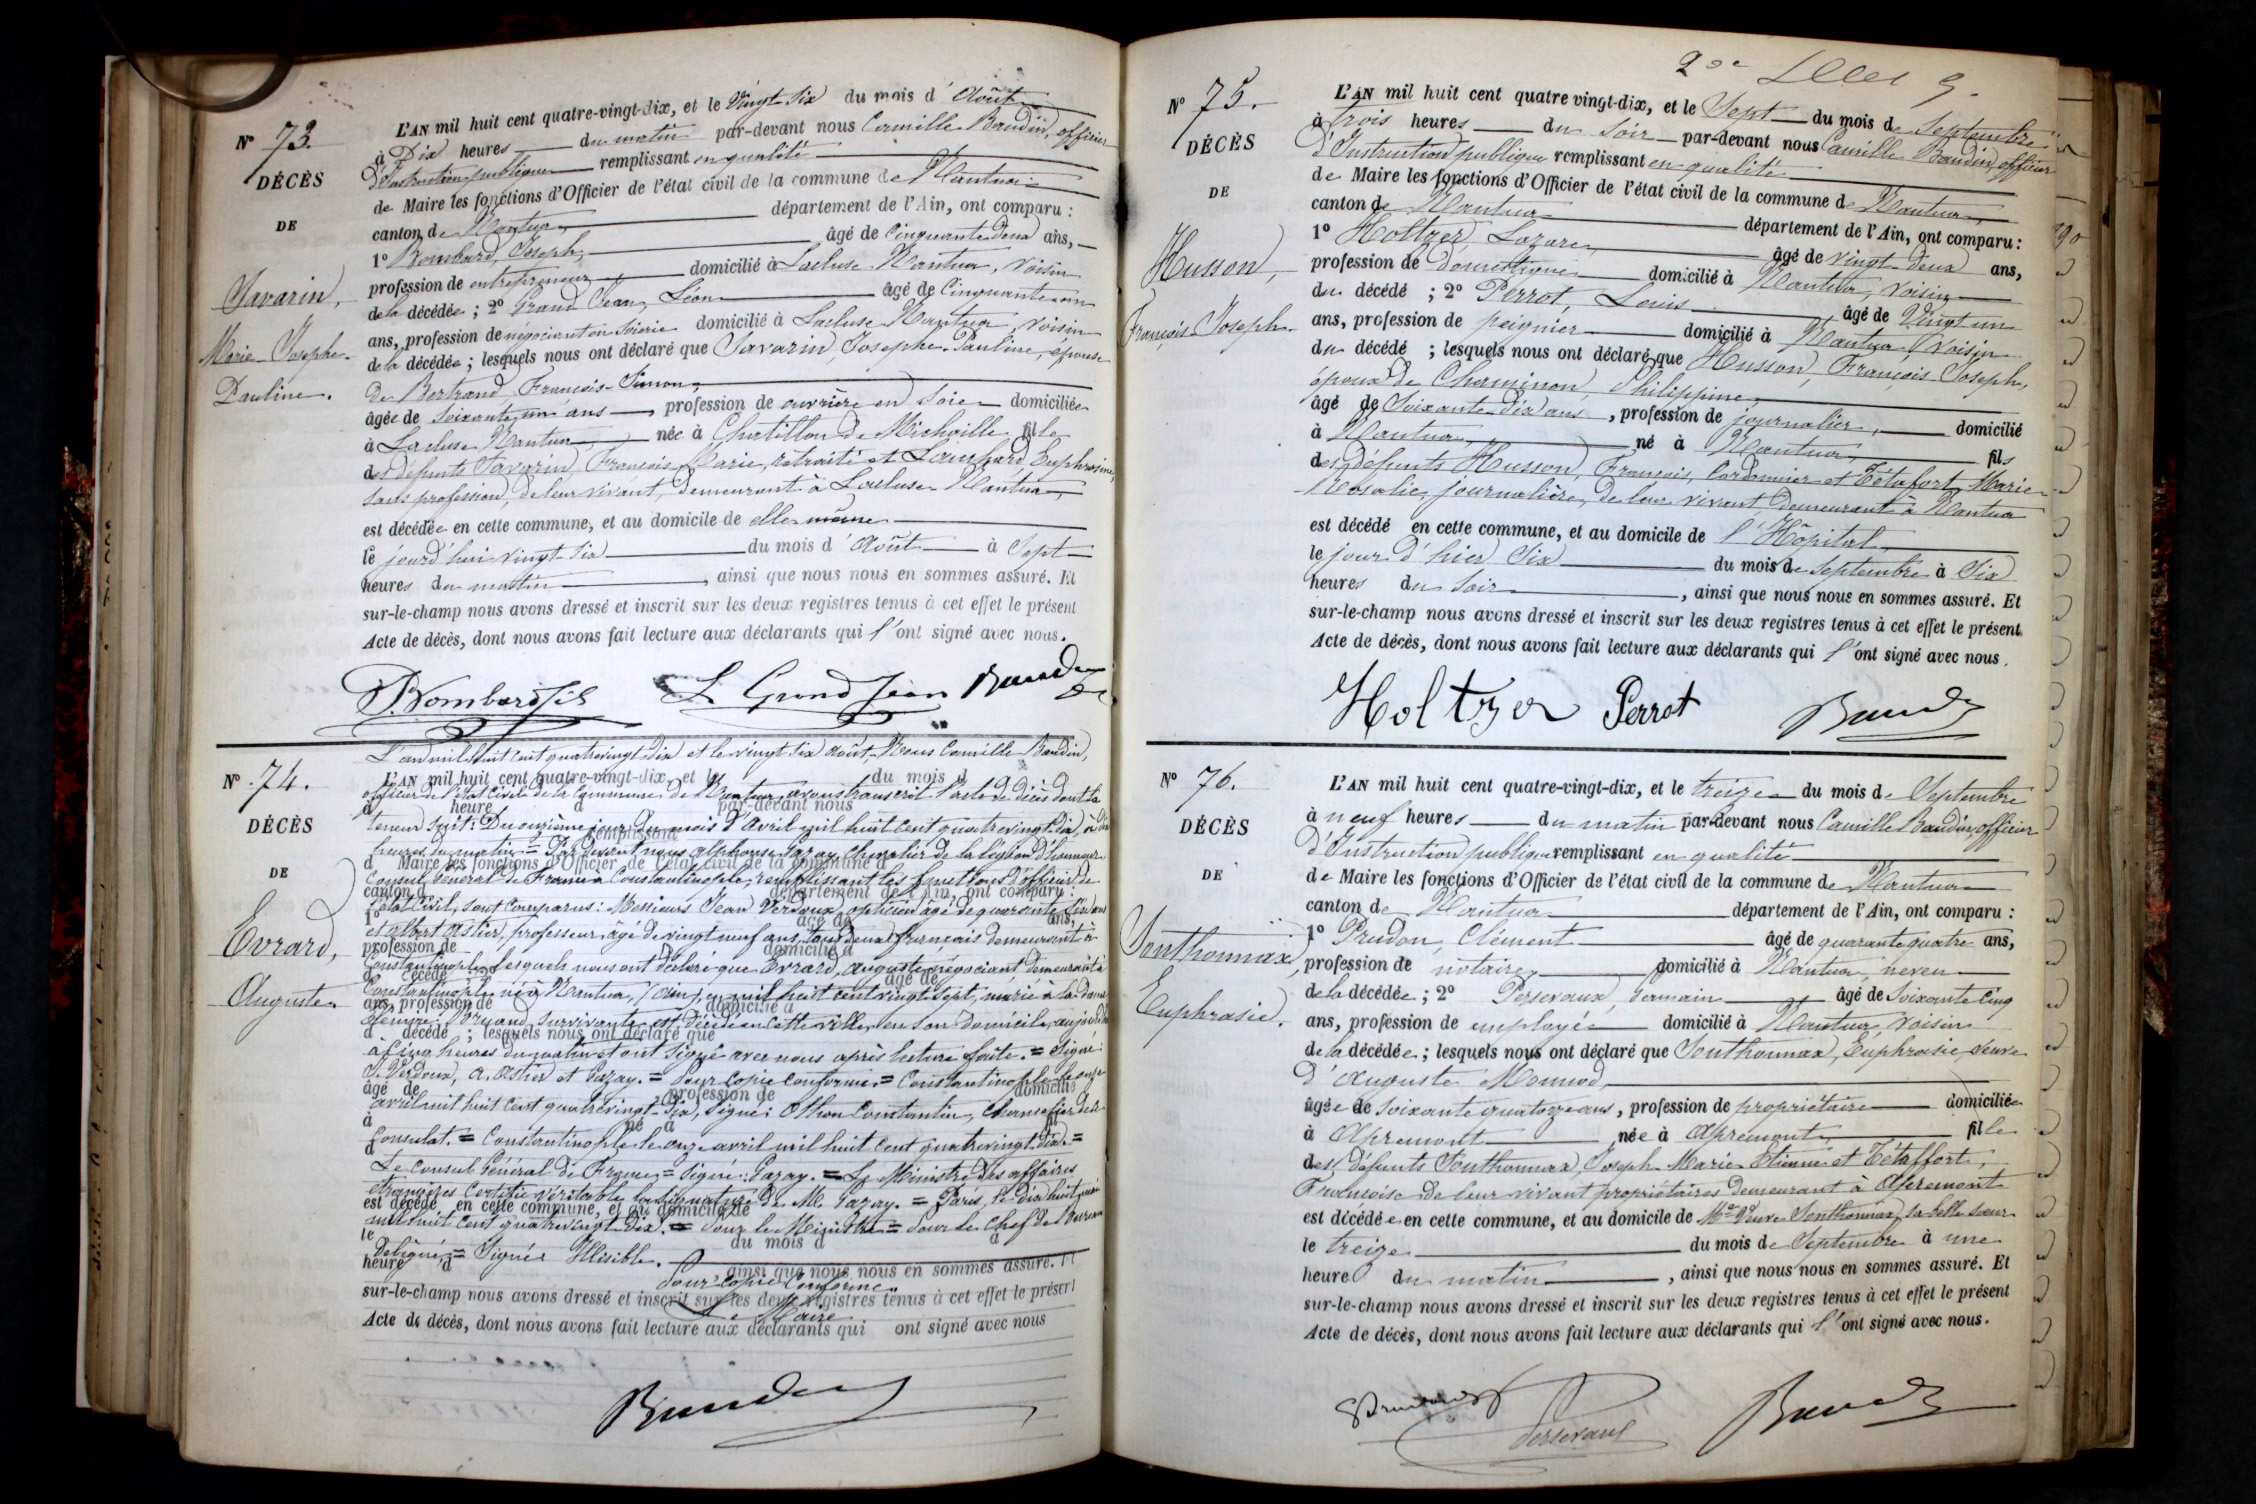 N° 73.
DÉCÈS
DE
Savarin,
Marie-Josephe-
Pauline.
L'AN mil huit cent quatre-vingt-dix, et le Vingt-six du mois d'Août
à Dix heures du matin par-devant nous Camille Baudin, officier
d'Instruction publique remplissant en qualité
de Maire les fonctions d'Officier de l'état civil de la commune de Nantua
canton de Nantua département de l'Ain, ont comparu :
1° Bombard, Joseph, âgé de Cinquante deux ans,
profession de entrepreneur domicilié à Lacluse Nantua, voisin
de la décédée ; 2° Grand Jean, Léon âgé de Cinquante un
ans, profession de négociant en soierie domicilié à Lacluse Nantua, voisin
de la décédée ; lesquels nous ont déclaré que Savarin, Josephe-Pauline, épouse
De Bertrand François-Simon,
âgée de soixante un ans, profession de ouvrière en soie domiciliée
à Lacluse Nantua née à Chatillon de Michaille fille
des défunts Savarin, François Marie, retraité et Euphrosine,
sans profession, de leur vivant, demeurant à Lacluse Nantua,
est décédée en cette commune, et au domicile de elle même
le jourd'hui vingt six du mois d'Août à Sept
heures du matin, ainsi que nous nous en sommes assuré. Et
sur-le-champ nous avons dressé et inscrit sur les deux registres tenus à cet effet le présent
Acte de décès, dont nous avons fait lecture aux déclarants qui l'ont signé avec nous.
J. Bombard fils L Grand Jean Baudin
N° 74.
DÉCÈS
DE
Evrard,
Auguste.
L'an mil huit cent quatrevingt dix et le vingt six août, Nous Camille Baudin,
L'AN mil huit cent quatre-vingt-dix, et le du mois d
officier de l'état civil de la commune de Nantua, avons transcrit l'acte de décès dont la
à heure d par-devant nous
teneur suit : Du onzième jour du mois d'avril mil huit cent quatrevingt dix, à dix
remplissant
heures du matin = Par devant nous Alphonse chevalier de la légion d'honneur
d Maire les fonctions d'Officier de l'état civil de la commune d
Consul Général de France à Constantinople, remplissant les fonctions d'officier de
canton d département de l'Ain, ont comparu :
l'état civil, sont comparus : Messieurs Jean Verdoux, opticien âgé de quarante six ans
1° âgé de ans,
et Albert Astier, professeur, âgé de vingt neuf ans, tous deux français demeurant à
profession de domicilié à
Constantinople, lesquels nous ont déclaré que Evrard, Auguste, négociant demeurant à
d décédé ; 2° âgé de
Constantinople né à Nantua, (Ain), en mil huit cent vingt sept, marié à la dame
ans, profession de domicilié à
survivante est décédé en cette ville, en son domicile, aujourd'hui
d décédé ; lesquels nous ont déclaré que
à cinq heures du matin et ont signé avec nous après lecture faite. = Signé :
J. Verdoux, A. Astier et = Pour copie conforme = Constantinople, le onze
âgé de profession de domicilié
avril mil huit cent quatrevingt-dix, signé : Othon Constantin, Chancelier de ce
à né à fil
Consulat. = Constantinople le onze avril mil huit cent quatrevingt dix. =
d
Le Consul Général de France = signé : = Le Ministre des affaires
étrangères certifie véritable la signature de M. = Paris, le dix huit
est décédé en cette commune, et au domicile de
mil huit cent quatrevingt dix. = Pour le Ministre = Pour le chef de Bureau
le du mois d à
Délégué, = Signé : Illisible.
heure d ainsi que nous nous en sommes assuré. Et
Pour copie conforme.
sur-le-champ nous avons dressé et inscrit sur les deux registres tenus à cet effet le présent
Le Maire
Acte de décès, dont nous avons fait lecture aux déclarants qui ont signé avec nous
Baudin
N° 75.
DÉCÈS
DE
Husson,
François-Joseph.
L'AN mil huit cent quatre vingt-dix, et le Sept du mois de Septembre
à trois heures du soir par-devant nous Camille Baudin, officier
d'Instruction publique remplissant en qualité
de Maire les fonctions d'Officier de l'état civil de la commune de Nantua,
canton de Nantua département de l'Ain, ont comparu :
1° Holtzer, Lazare, âgé de vingt-deux ans,
profession de domestique domicilié à Nantua, voisin
du décédé ; 2° Perrot, Louis âgé de Vingt un
ans, profession de peignier domicilié à Nantua, voisin
du décédé ; lesquels nous ont déclaré que Husson, François-Joseph,
époux de Cherminon, Philippine,
âgé de Soixante dix ans, profession de journalier, domicilié
à Nantua né à Nantua fils
des défunts Husson, François, Cordonnier et Tétafort, Marie-
Rosalie, journalière, de leur vivant, demeurant à Nantua
est décédé en cette commune, et au domicile de l'Hôpital
le jour d'hier six du mois de Septembre à Six
heures du soir, ainsi que nous nous en sommes assuré. Et
sur-le-champ nous avons dressé et inscrit sur les deux registres tenus à cet effet le présent
Acte de décès, dont nous avons fait lecture aux déclarants qui l'ont signé avec nous.
Holtzer Perrot Baudin
N° 76.
DÉCÈS
DE
Sonthonnax,
Euphrasie.
L'AN mil huit cent quatre-vingt-dix, et le treize du mois de Septembre
à neuf heures du matin par-devant nous Camille Baudin, officier
d'Instruction publique remplissant en qualité
de Maire les fonctions d'Officier de l'état civil de la commune de Nantua
canton de Nantua département de l'Ain, ont comparu :
1° Prudon, Clément âgé de quarante quatre ans,
profession de notaire, domicilié à Nantua, neveu
de la décédée ; 2° Persevaux, Germain âgé de soixante cinq
ans, profession de employé domicilié à Nantua, voisin
de la décédée ; lesquels nous ont déclaré que Sonthonnax, Euphrasie, veuve
d'Auguste Monnod,
âgée de soixante quatorze ans, profession de propriétaire domiciliée
à Apremont née à Apremont, fille
des défunts Sonthonnax, Joseph-Marie-Etienne et Tétaffort,
Françoise de leur vivant propriétaires demeurant à Apremont
est décédée en cette commune, et au domicile de Mme Veuve Sonthonnax, sa belle sœur
le treize du mois de Septembre à une
heure du matin, ainsi que nous nous en sommes assuré. Et
sur-le-champ nous avons dressé et inscrit sur les deux registres tenus à cet effet le présent
Acte de décès, dont nous avons fait lecture aux déclarants qui l'ont signé avec nous.
Prudon Persevaux Baudin